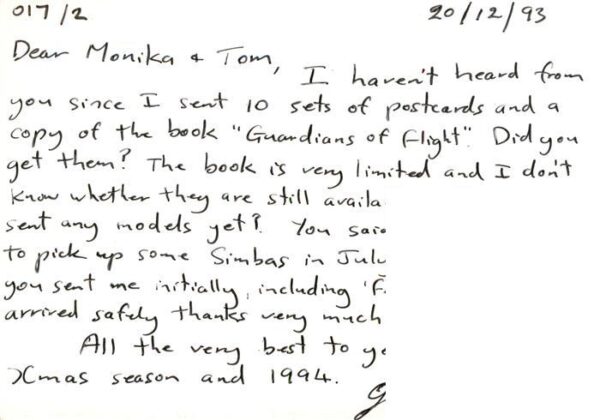 017/2 20/12/93
Dear Monika & Tom,
I haven't heard from
you since I sent 10 sets of postcards and a
copy of the book "Guardians of Flight". Did you
get them? The book is very limited and I don't
know whether they are still availa
sent any models yet? You said
to pick up some Simbas in July
you sent me initially, including 'F.
arrived safely thanks very much
All the very best to yo
Xmas season and 1994.